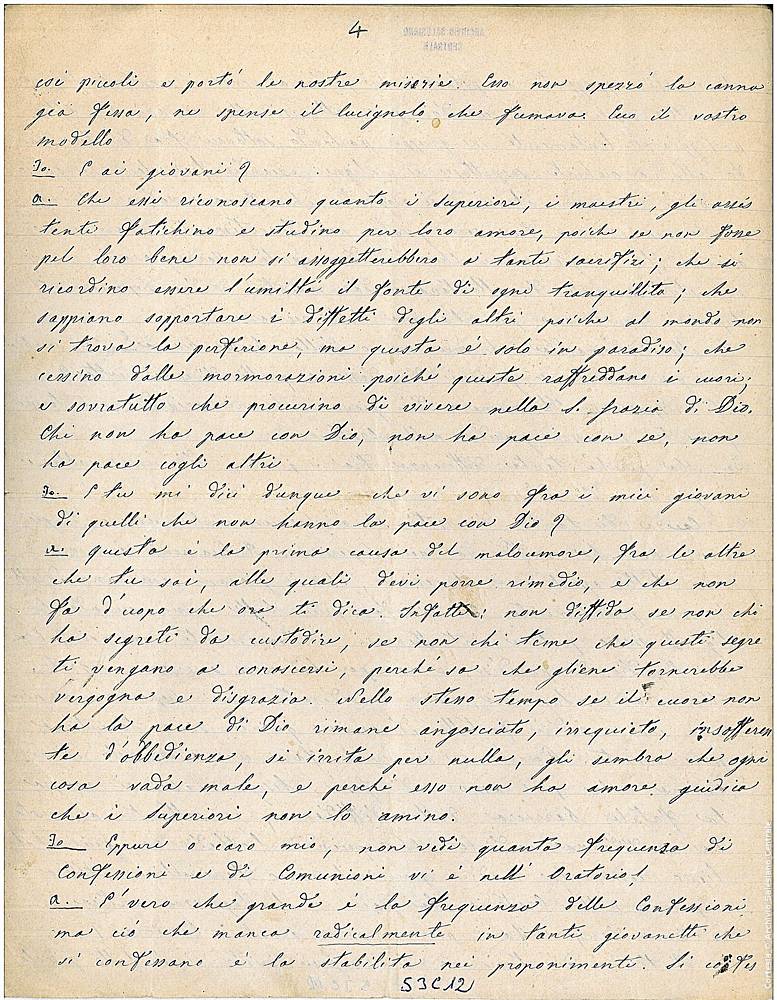 4
ARCHIVIO SALESIANO
CENTRALE
coi piccoli e portò le nostre miserie. Esso non spezzò la canna
già fessa, ne spense il lucignolo che fumava. Ecco il vostro
modello
Io. E ai giovani?
a. Che essi riconoscano quanto i superiori, i maestri, gli assis
tenti fatichino e studino per loro amore, poiche se non fosse
pel loro bene non si assoggetterebbero a tanti sacrifizi; che si
ricordino essere l'umiltà il fonte di ogni tranquillità; che
sappiano sopportare i diffetti degli altri poiche al mondo non
si trova la perfezione, ma questa é solo in paradiso; che
cessino dalle mormorazioni poiché queste raffreddano i cuori;
e sovratutto che procurino di vivere nella S. Grazia di Dio.
Chi non ha pace con Dio, non ha pace con se, non
ha pace cogli altri
Io. E tu mi dici dunque che vi sono fra i miei giovani
di quelli che non hanno la pace con Dio?
a. Questa è la prima causa del maloumore, fra le altre
che tu sai, alle quali devi porre rimedio, e che non
fa d'uopo che ora ti dica. Infatti: non diffida se non chi
ha segreti da custodire, se non chi teme che questi segre
ti vengano a conoscersi, perché sa che gliene tornerebbe
vergogna e disgrazia. Nello stesso tempo se il cuore non
ha la pace di Dio rimane angosciato, irrequieto, insofferen
te d'obbedienza, si irrita per nulla, gli sembra che ogni
cosa vada male, e perché esso non ha amore giudica
che i Superiori non lo amino.
Io Eppure o caro mio, non vedi quanta frequenza di
Confessioni e di Comunioni vi é nell' Oratorio!
a. E' vero che grande é la frequenza delle Confessioni
ma ciò che manca radicalmente in tanti giovanetti che
si confessano é la stabilità nei proponimenti. Si confes
S3C12
Cortesia © Archivio Salesiano Centrale